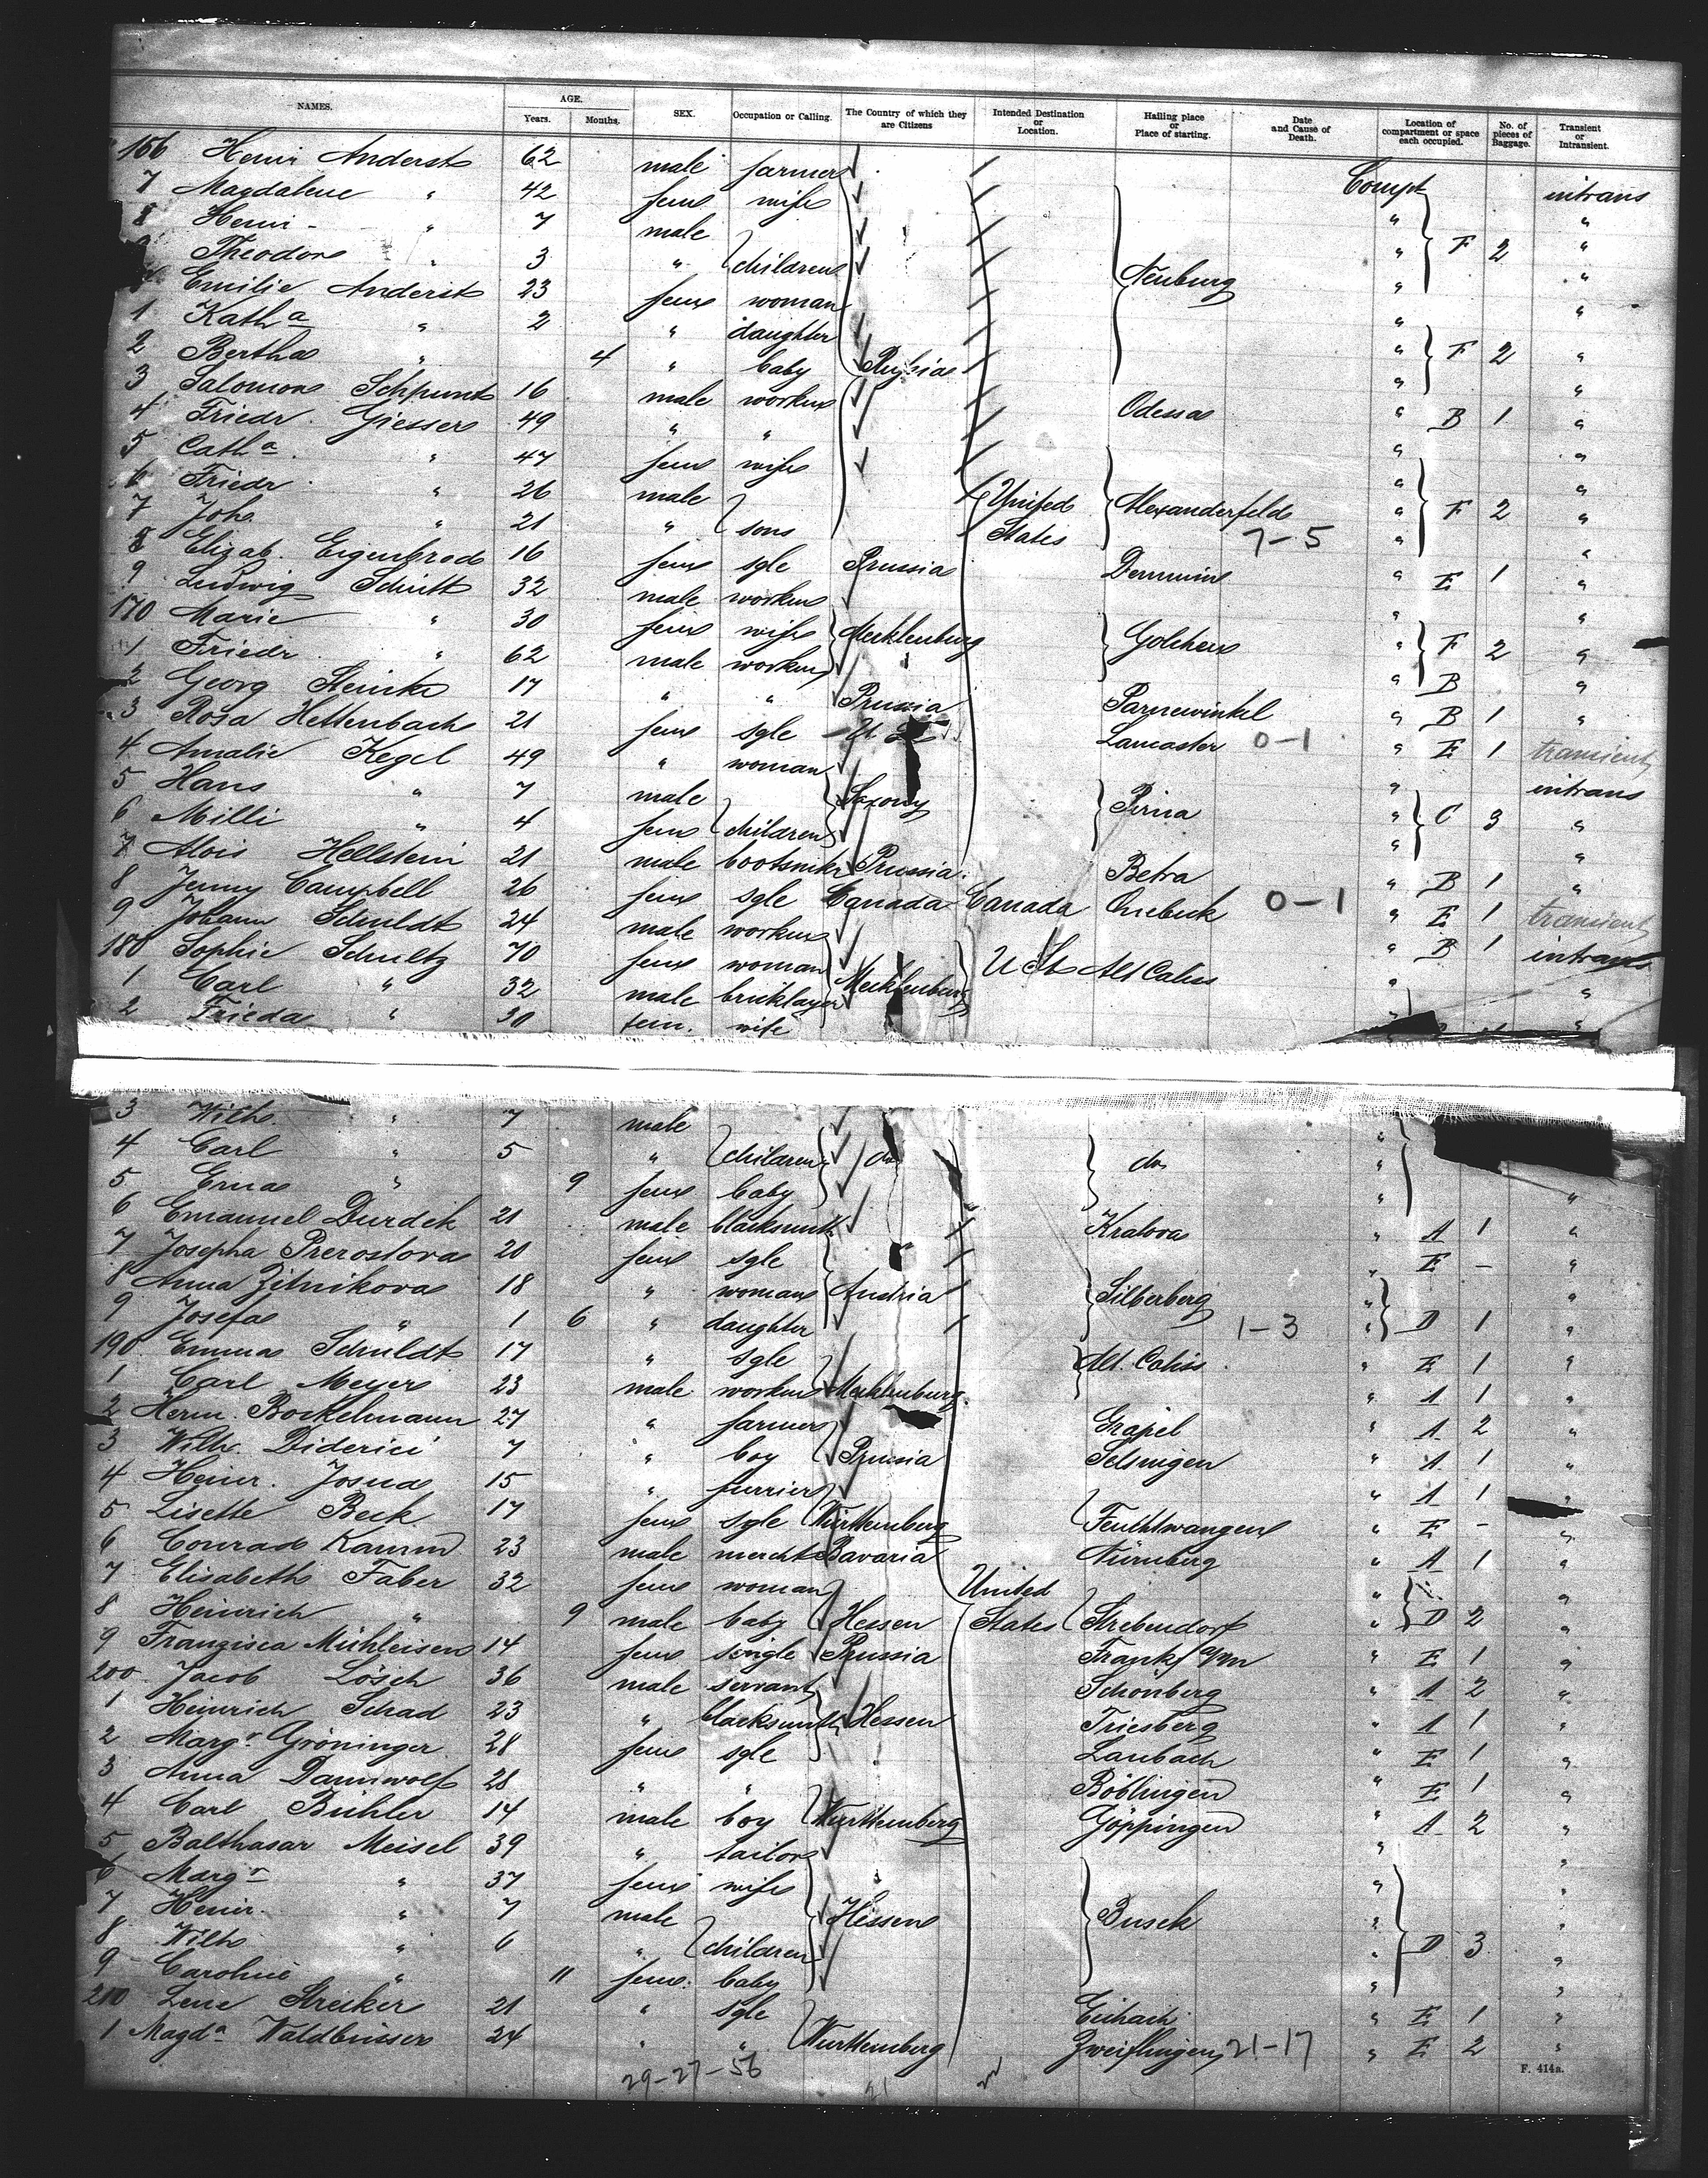 NAMES. AGE. Years. Months. SEX. Occupation or Calling. The Country of which they are Citizens Intended Destination or Location. Hailing place or Place of starting. Date and Cause of Death. Location of compartment or space each occupied. No. of pieces of Baggage. Transient or Intransient.
156 Heinr Anderst 62 male farmer Compt intrans
7 Magdalene " 42 fem wife " "
8 Heinr " 7 male " F 2 "
Theodor " 3 " children Neuburg " "
Emilie Anderst 23 fem woman " "
1 Kath a " 2 " daughter " F 2 "
2 Bertha " 4 " baby Russia " "
3 Salomon Schpunt 16 male worker Odessa " B 1 "
4 Friedr. Giesser 49 " " " "
5 Cath a " 47 fem wife " "
6 Friedr. " 26 male United Alexanderfeld " F 2 "
7 Joh. " 21 " sons States 7-5 " "
8 Elizab. Eigenbrod 16 fem sgle Prussia Demmin " E 1 "
9 Ludwig Schutt 32 male worker " "
170 Marie " 30 fem wife Mecklenburg Golchen " F 2 "
1 Friedr " 62 male worker " B "
2 Georg Steinke 17 " " Prussia Parnewinkel " B 1 "
3 Rosa Hettenbach 21 fem sgle U. S. Lancaster 0-1 " E 1 transient
4 Amalie Kegel 49 " woman " intrans
5 Hans " 7 male Saxony Pirna " C 3 "
6 Milli " 4 fem children " "
7 Alois Hellstern 21 male bootmkr Prussia Betra " B 1 "
8 Jenny Campbell 26 fem sgle Canada Canada Quebeck 0-1 " E 1 transient
9 Johann Schuldt 24 male worker " B 1 intrans
180 Sophie Schultz 70 fem woman U St Alt Caliss " "
1 Carl " 32 male bricklayer Mecklenburg "
2 Frieda " 30 fem. wife "
3 Wilh. " 7 male "
4 Carl " 5 " children do do "
5 Erna " 9 fem baby " "
6 Emanuel Durdek 21 male blacksmith Kralova " A 1 "
7 Josepha Prerostova 20 fem sgle " E - "
8 Anna Zitnikova 18 " woman Austria Silberberg " "
9 Josefa " 1 6 " daughter 1-3 " D 1 "
190 Emma Schuldt 17 " sgle Alt. Caliss " E 1 "
1 Carl Meyer 23 male worker Mecklenburg " A 1 "
2 Herm. Bockelmann 27 " farmer Grapel " A 2 "
3 Wilh. Diderici 7 " boy Prussia Selsingen " A 1 "
4 Heinr. Josua 15 " furrier " A 1 "
5 Lisette Beck 17 fem sgle Württemberg Feuchtwangen " E - "
6 Conrad 23 male mercht Bavaria Nürnberg " A 1 "
7 Elisabeth Faber 32 fem woman United " "
8 Heinrich " 9 male baby Hessen States Strebendorf " D 2 "
9 Franzisca Mühleisen 14 fem single Prussia Frankf a/m " E 1 "
200 Jacob Lösch 36 male servant Schönberg " A 2 "
1 Heinrich Schad 23 " blacksmith Hessen Triesberg " A 1 "
2 Margr. Gröninger 28 fem sgle Laubach " E 1 "
3 Anna Dannwolf 28 " " Böblingen " E 1 "
4 Carl Bühler 14 male boy Württemberg Göppingen " A 2 "
5 Balthasar Meisel 39 " tailor " "
6 Margr " 37 fem wife " "
7 Heinr. " 7 male Hessen Buseck " "
8 Wilh " 6 " children " D 3 "
9 Caroline " 11 fem. baby " "
210 Lene Strecker 21 " sgle " E 1 "
1 Magda Waldbüsser 24 " " Württemberg Zweiflingen 21-17 " E 2 "
29-27-56 21
F. 414a.